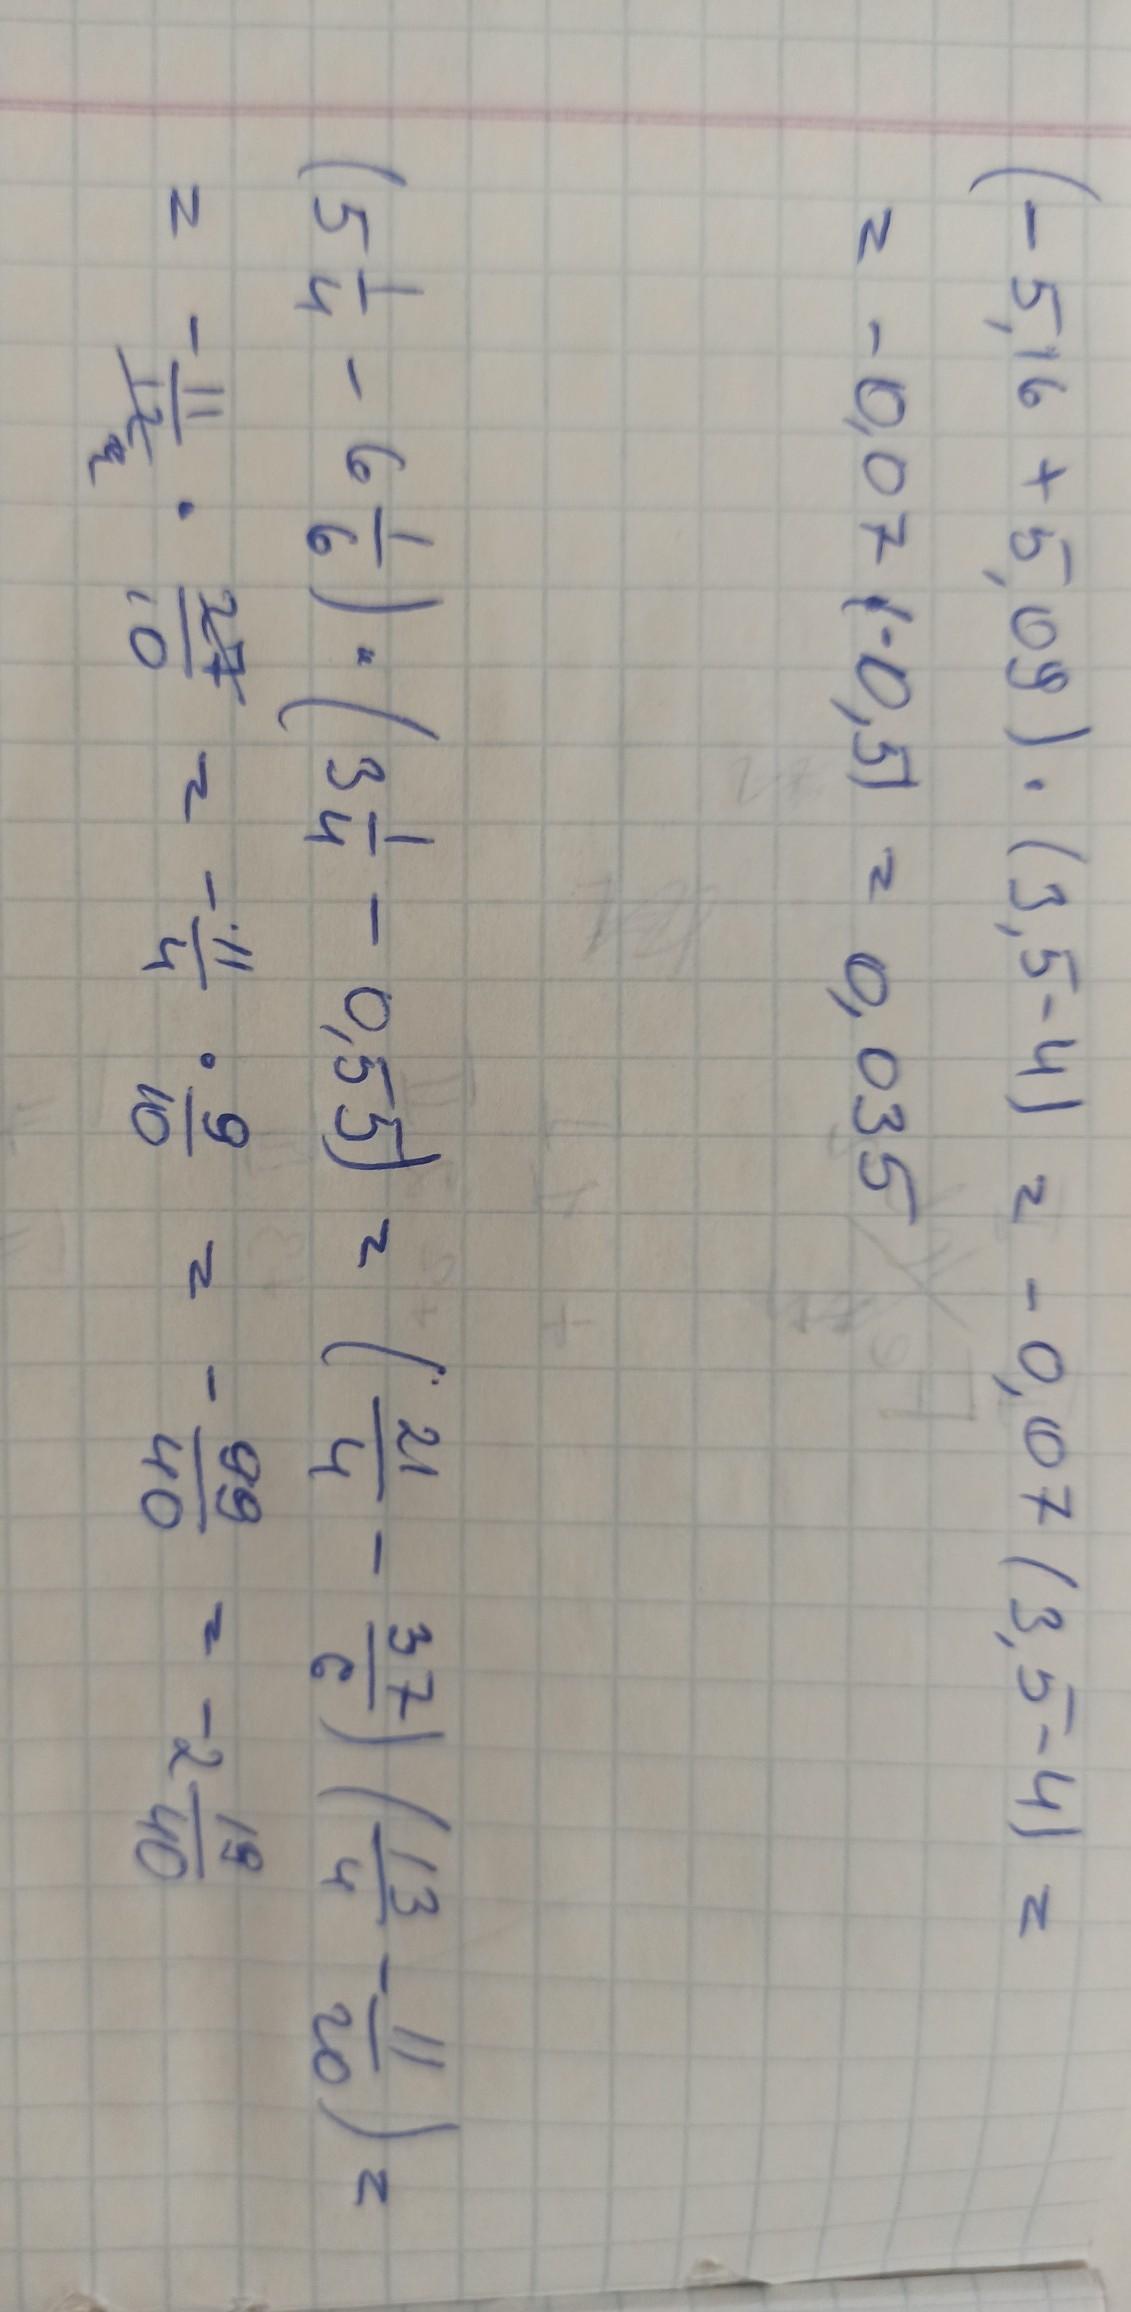 (-5,16 + 5,09) · (3,5-4) = -0,07 (3,5-4) =
= -0,07 (-0,5) = 0,035
(5 1/4 - 6 1/6) · (3 1/4 - 0,55) = (21/4 - 37/6) (13/4 - 11/20) =
= - 11/12 · 27/10 = - 11/4 · 9/10 = - 99/40 = -2 19/40